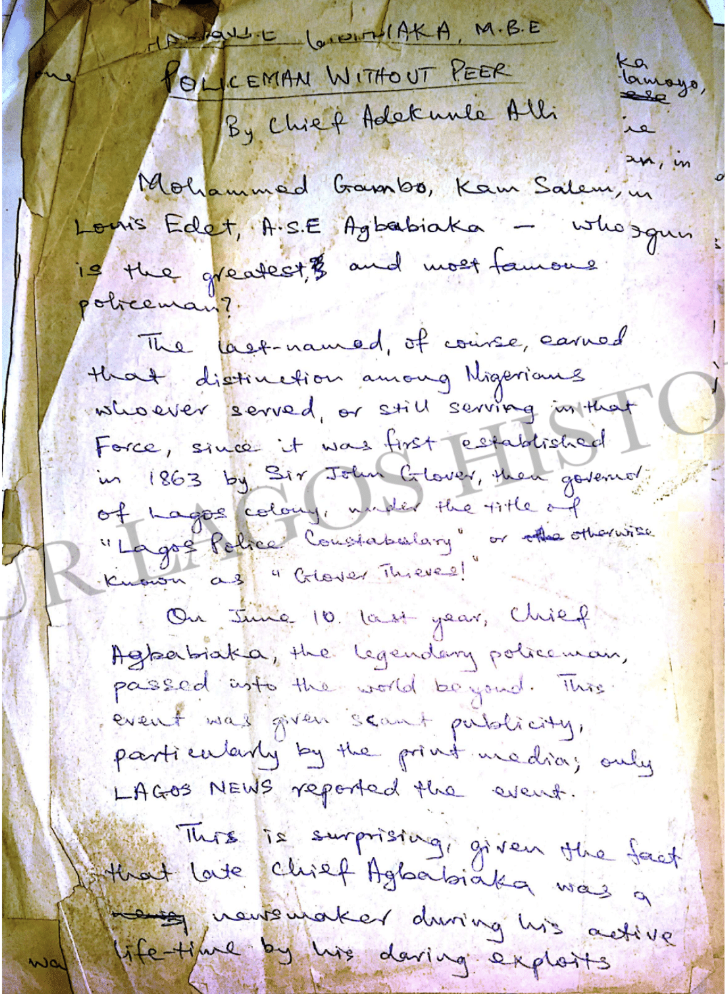 AGBABIAKA, M.B.E
POLICEMAN WITHOUT PEER
By Chief Adekunle Alli
ka
lamoyo,
ese
ie
an, in
one
Mohammed Gambo, Kam Salem, m
Louis Edet, A.S.E Agbabiaka — who
is the greatest, and most famous
policeman?
The last-named, of course, earned
that distinction among Nigerians
whoever served, or still serving in that
Force, since it was first established
in 1863 by Sir John Glover, then governor
of Lagos colony, under the title of
"Lagos Police Constabulary" or othe otherwise
known as "Glover Thieves!"
On June 10. last year, Chief
Agbabiaka, the legendary policeman,
passed into the world beyond. This
event was given scant publicity,
particularly by the print media; only
LAGOS NEWS reported the event.
This is surprising, given the fact
that late Chief Agbabiaka was a
newsmaker during his active
life-time by his daring exploits
wa
UR LAGOS HISTO